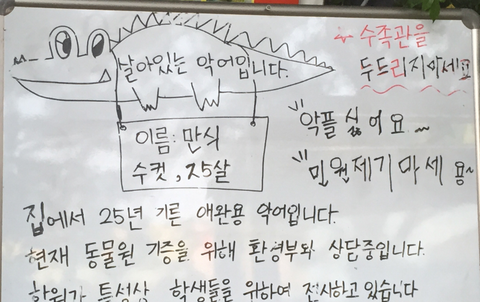 살아있는 악어입니다.
~ 수족관을
두드리지마세요
이름: 만식
수컷, 25살
"악플 싫어요~
"민원제기 마세용~
집에서 25년 기른 애완용 악어입니다.
현재 동물원 기증을 위해 환경부와 상담중입니다.
학원가 특성상 학생들을 위하여 전시하고 있습니다